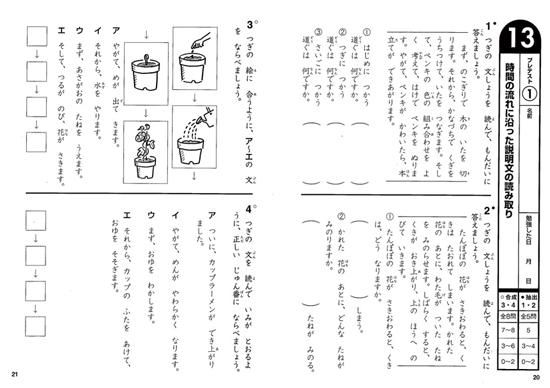 13
プレテスト
①
名前
時間の流れに沿った説明文の読み取り
勉強した日　月　日
○合成
3・4
●抽出
1・2
全8問
全5問
7〜8
5
3〜6
3〜4
0〜2
0〜2
1 つぎの 文しょうを 読んで、もんだいに
答えましょう。
まず、のこぎりで 木の いたを 切
ります。それから、かなづちで くぎを
うちつけて、いたを つなぎます。そし
て、ペンキの 色の 組み合わせを よ
く 考えて、はけで ペンキを ぬりま
す。やがて、ペンキが かわいたら、本
立てが できあがります。
① はじめに つかう
道ぐは 何ですか。
② つぎに つかう
道ぐは 何ですか。
③ さいごに つかう
道ぐは 何ですか。
2 つぎの 文しょうを 読んで、もんだいに
答えましょう。
たんぽぽの 花が さきおわると、く
きは たおれて しまいます。かれた
花の あとに、わた毛が ついた たね
を みのらせます。しばらく すると、
くきが おき上がり、上の ほうへ の
びて いきます。
① たんぽぽの 花が さきおわると、くき
は、どう なりますか。
しまう。
② かれた 花の あとに、どんな たねが
みのりますか。
たねが みのる。
20
3 つぎの 絵に 合うように、ア〜エの 文
を ならべましょう。
ア やがて、めが 出て きます。
イ それから、水を やります。
ウ まず、あさがおの たねを うえます。
エ そして、つるが のび、花が さきます。
4 つぎの 文を 読んで いみが とおるよ
うに、正しい じゅん番に ならべましょう。
ア ついに、カップラーメンが でき上がり
ました。
イ やがて、めんが やわらかく なります。
ウ まず、おゆを わかします。
エ それから、カップの ふたを あけて、
おゆを そそぎます。
21